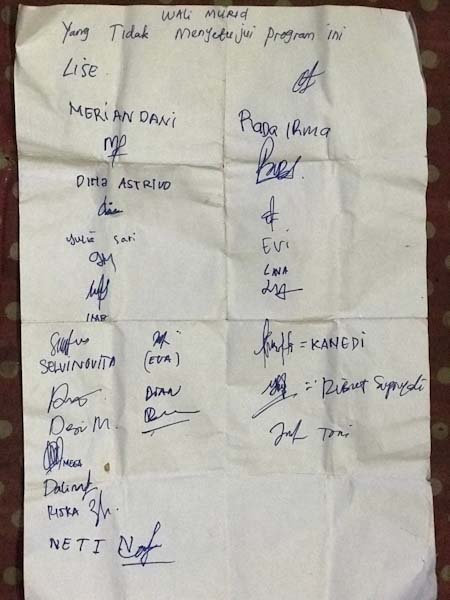 WALI MURID
Yang Tidak Menyetujui program ini
LISE
MERIANDANI
RADA IRMA
DIMA ASTRIVO
EVI
Yulia Sari
LINA
IMR
SELVI NOVITA
(EVA)
= KANEDI
DIAN
Desi M.
Toni
MEGA
Dalima
RISKA
NETI